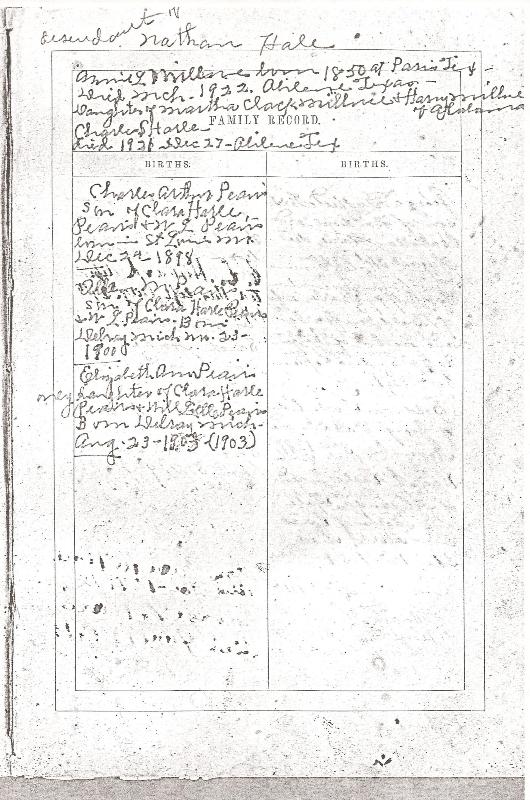 descendant of
Nathan Hale
Annie L Millnee born 1850 at Paris Tex -
Died Mch. 1922. Abilene Texas
Daughter of Martha Clack Millnee + Harry Millnee
of Alabama
Charles Harle
FAMILY RECORD.
Died 1921 Dec 27 - Abilene Tex
BIRTHS.
BIRTHS.
Charles Arthur Pearis
Son of Clara Harle
Pearis + W L Pearis
born in St Louis Mo
Dec 24 1898
Son of Clara Harle Pearis
+ W L Pearis. Born
Delray Mich no. 23-
1900
Elizabeth Ann Pearis
only daughter of Clara Harle
Pearis + Will Pearis
Born Delray Mich-
Aug. 23-1903 (1903)